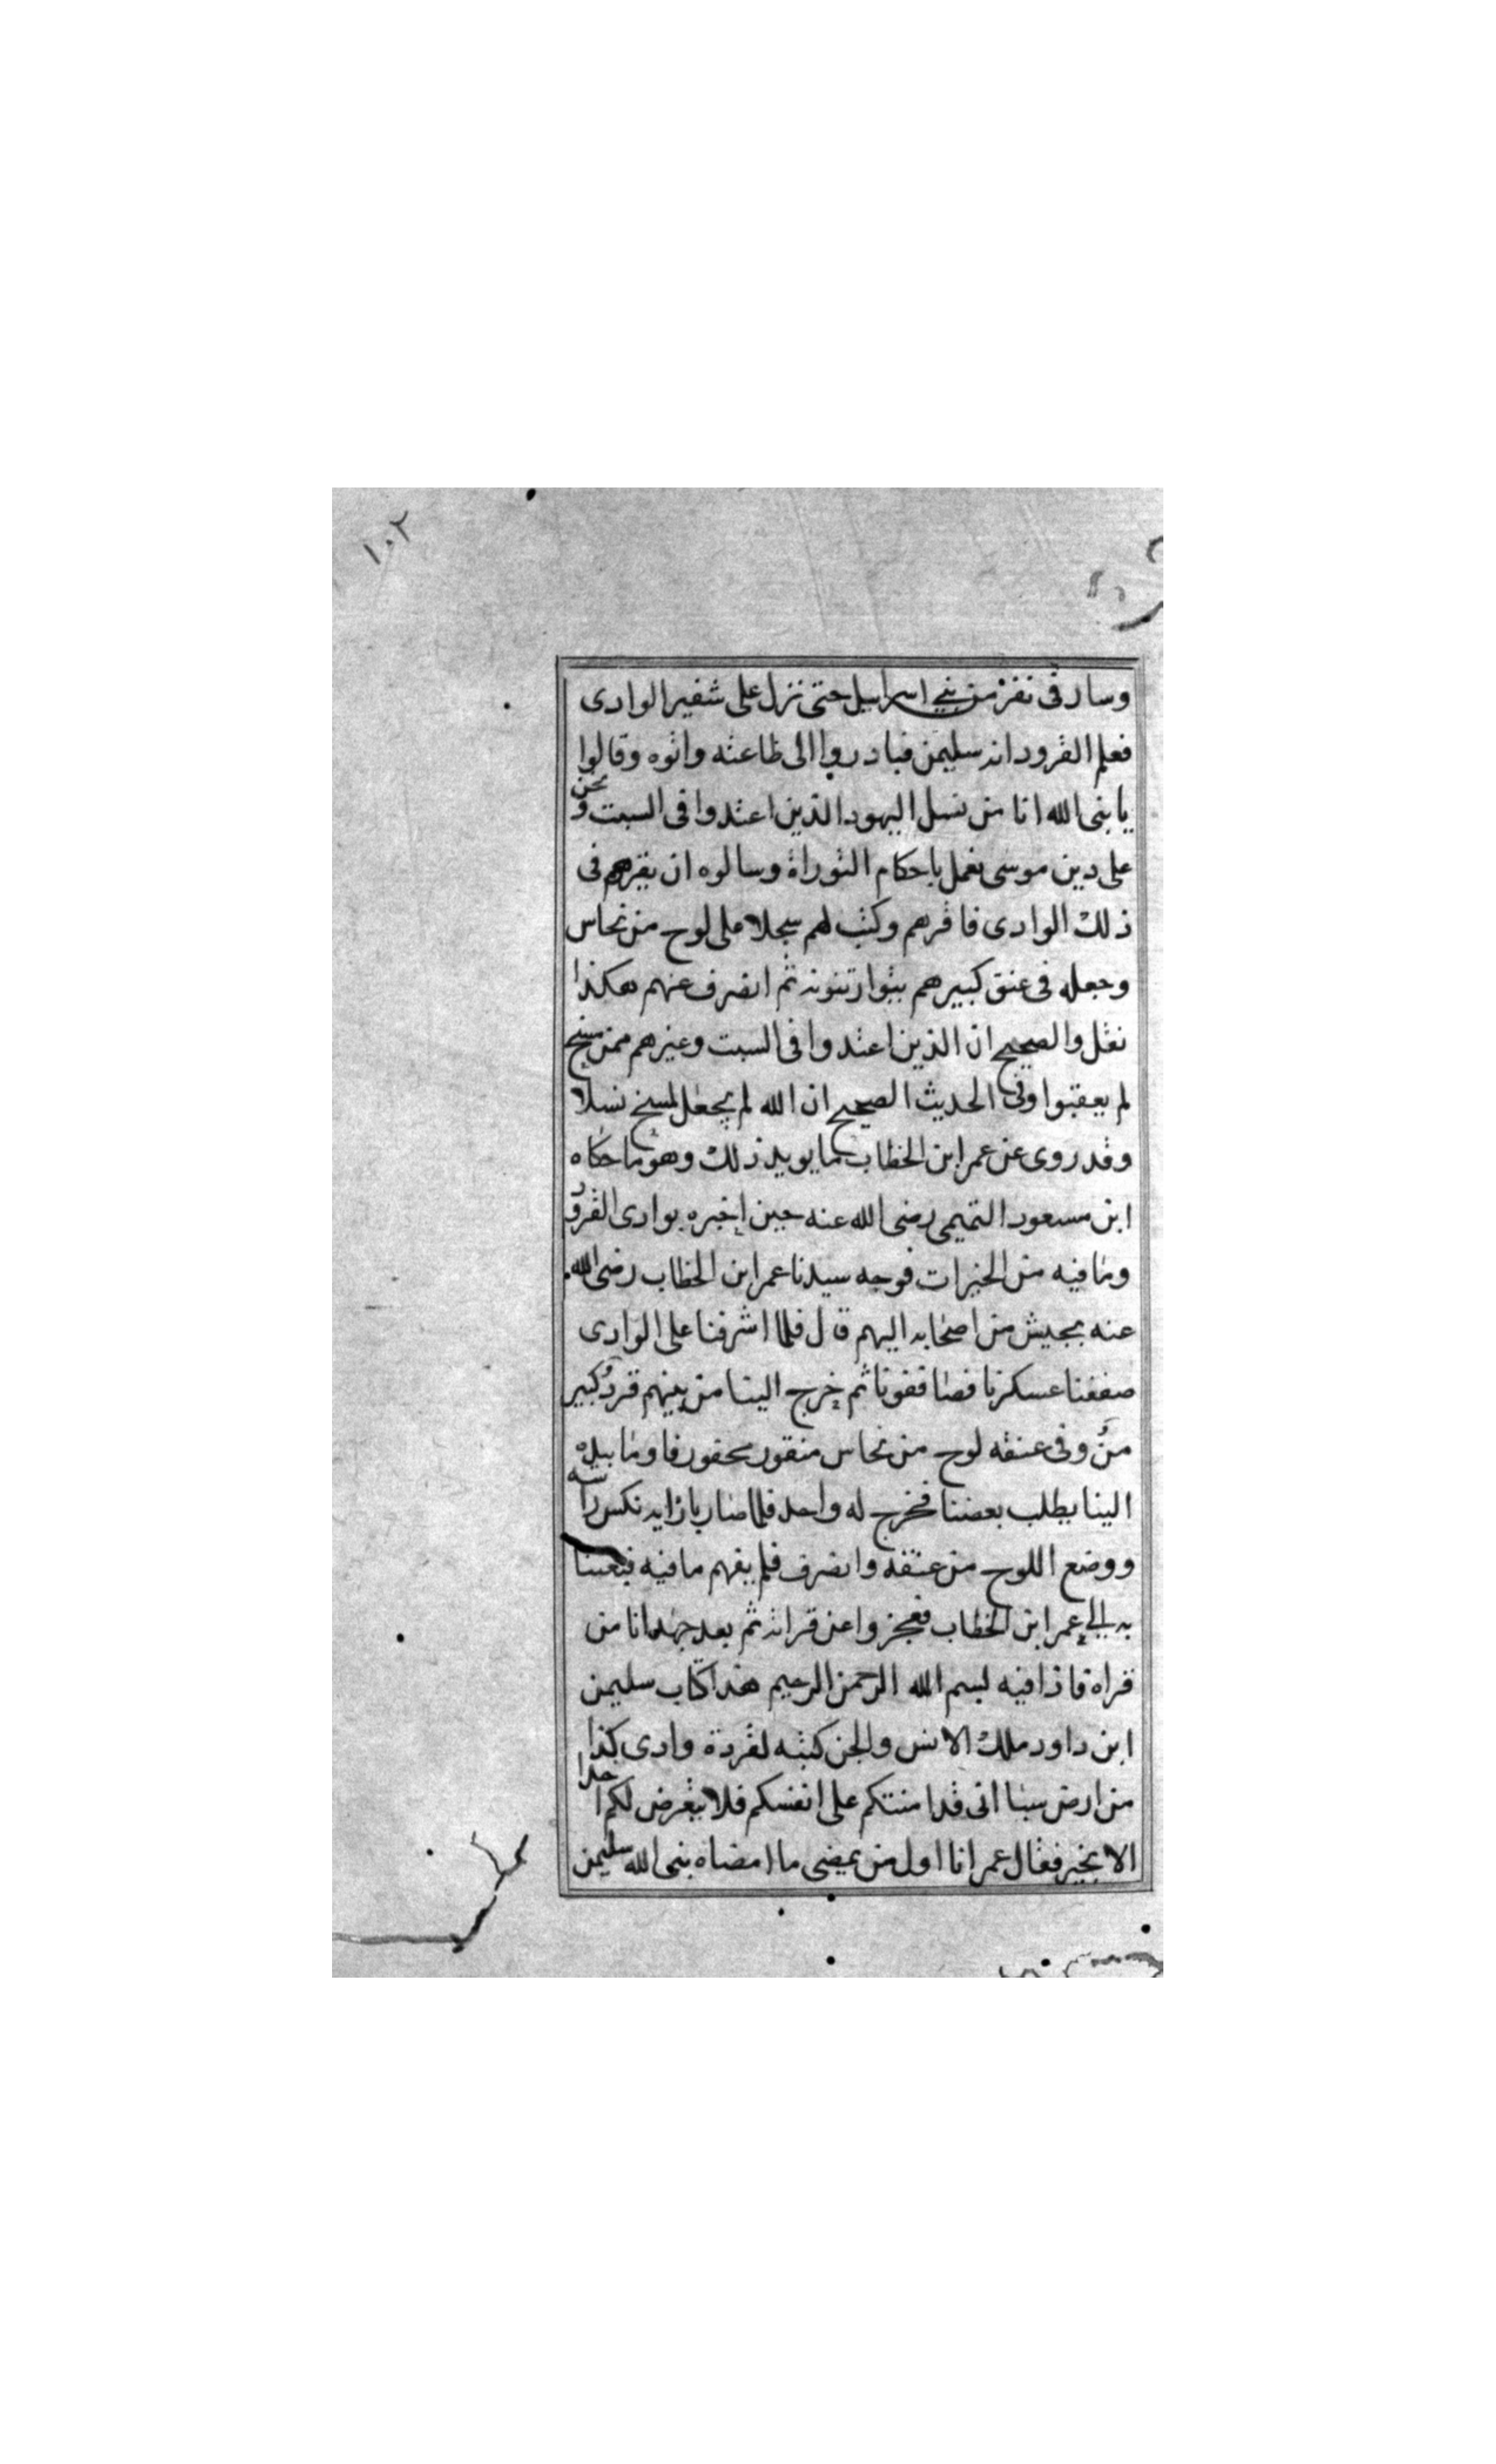 ١٠٢
وسار فى نفر من بنى اسراييل حتى نزل على شفير الوادى
فعلم القرود انه سليمن فبادروا الى طاعته واتوه وقالوا
يا نبى الله انا من نسل اليهود الذين اعتدوا فى السبت ونحن
على دين موسى نعمل باحكام التوراة وسالوه ان يقرهم فى
ذلك الوادى فاقرهم وكتب لهم سجلا على لوح من نحاس
وجعله فى عنق كبيرهم يتوارثونه ثم انصرف عنهم هكذا
نقل والصحيح ان الذين اعتدوا فى السبت وغيرهم ممن مسخ
لم يعقبوا وفى الحديث الصحيح ان الله لم يجعل لمسخ نسلا
وقد روى عن عمر ابن الخطاب ما يويد ذلك وهو ما حكاه
ابن مسعود التميمى رضى الله عنه حين اخبره بوادى القرود
وما فيه من الخيرات فوجه سيدنا عمر ابن الخطاب رضى الله
عنه بجيش من اصحابه اليهم قال فلما اشرفنا على الوادى
صففنا عسكرنا فصاففونا ثم خرج الينا من بينهم قرد كبير
من وفى عنقه لوح من نحاس منقور محفور فاوما بيده
الينا يطلب بعضنا فخرج له واحد فلما صار بازايه نكس راسه
ووضع اللوح من عنقه وانصرف فلم يفهم ما فيه فبعثنا
به الى عمر ابن الخطاب فعجزوا عن قراته ثم بعد جهد اتا من
قراه فاذا فيه بسم الله الرحمن الرحيم هذا كتاب سليمن
ابن داود ملك الانس والجن كتبه لقردة وادى كذا
من ارض سبا انى قد امنتكم على انفسكم فلا يتعرض لكم احدا
الا بخير فقال عمر انا اول من يمضى ما امضاه نبى الله سليمن